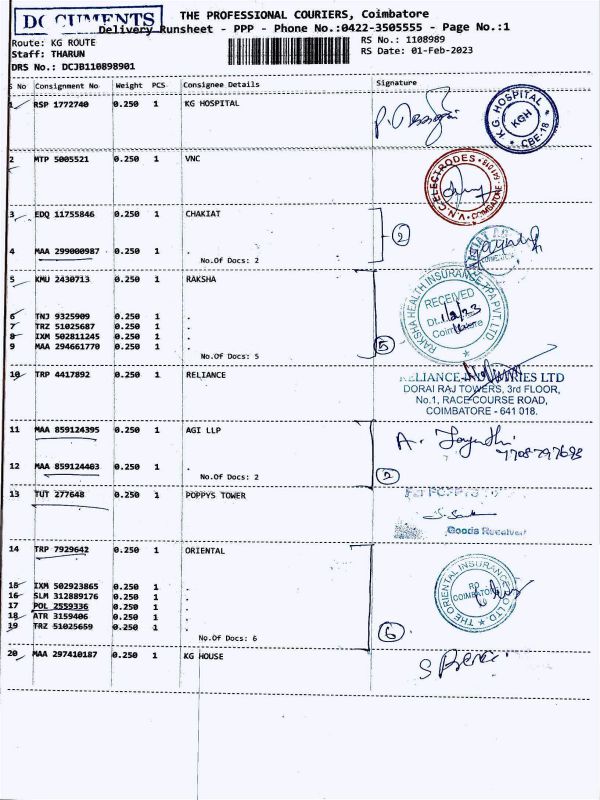 DOCUMENTS
THE PROFESSIONAL COURIERS, Coimbatore
Delivery Runsheet - PPP - Phone No.:0422-3505555 - Page No.:1
Route: KG ROUTE
RS No.: 1108989
Staff: THARUN
RS Date: 01-Feb-2023
DRS No.: DCJB110898901
S No Consignment No Weight PCS Consignee Details Signature
1 RSP 1772740 0.250 1 KG HOSPITAL
K.G. HOSPITAL
KGH
CBE-18
2 MTP 5005521 0.250 1 VNC
V.N.C. ELECTRODES
COIMBATORE
3 EDQ 11755846 0.250 1 CHAKIAT
2
4 MAA 299000987 0.250 1 .
No.Of Docs: 2
5 KMU 2430713 0.250 1 RAKSHA
RAKSHA HEALTH INSURANCE TPA PVT. LTD
RECEIVED
Dt. 1/2/23
Coimbatore
6 TNJ 9325909 0.250 1 .
7 TRZ 51025687 0.250 1 .
8 IXM 502811245 0.250 1 .
9 MAA 294661770 0.250 1 .
No.Of Docs: 5
5
10 TRP 4417892 0.250 1 RELIANCE
RELIANCE INDUSTRIES LTD
DORAI RAJ TOWERS, 3rd FLOOR,
No.1, RACE COURSE ROAD,
COIMBATORE - 641 018.
11 MAA 859124395 0.250 1 AGI LLP
A. Jayanthi
7708797693
12 MAA 859124403 0.250 1 .
No.Of Docs: 2
2
13 TUT 277648 0.250 1 POPPYS TOWER
Goods Received
14 TRP 7929642 0.250 1 ORIENTAL
THE ORIENTAL INSURANCE CO. LTD.
RO
COIMBATORE
15 IXM 502923865 0.250 1 .
16 SLM 312889176 0.250 1 .
17 POL 2559336 0.250 1 .
18 ATR 3159406 0.250 1 .
19 TRZ 51025659 0.250 1 .
No.Of Docs: 6
6
20 MAA 297410187 0.250 1 KG HOUSE